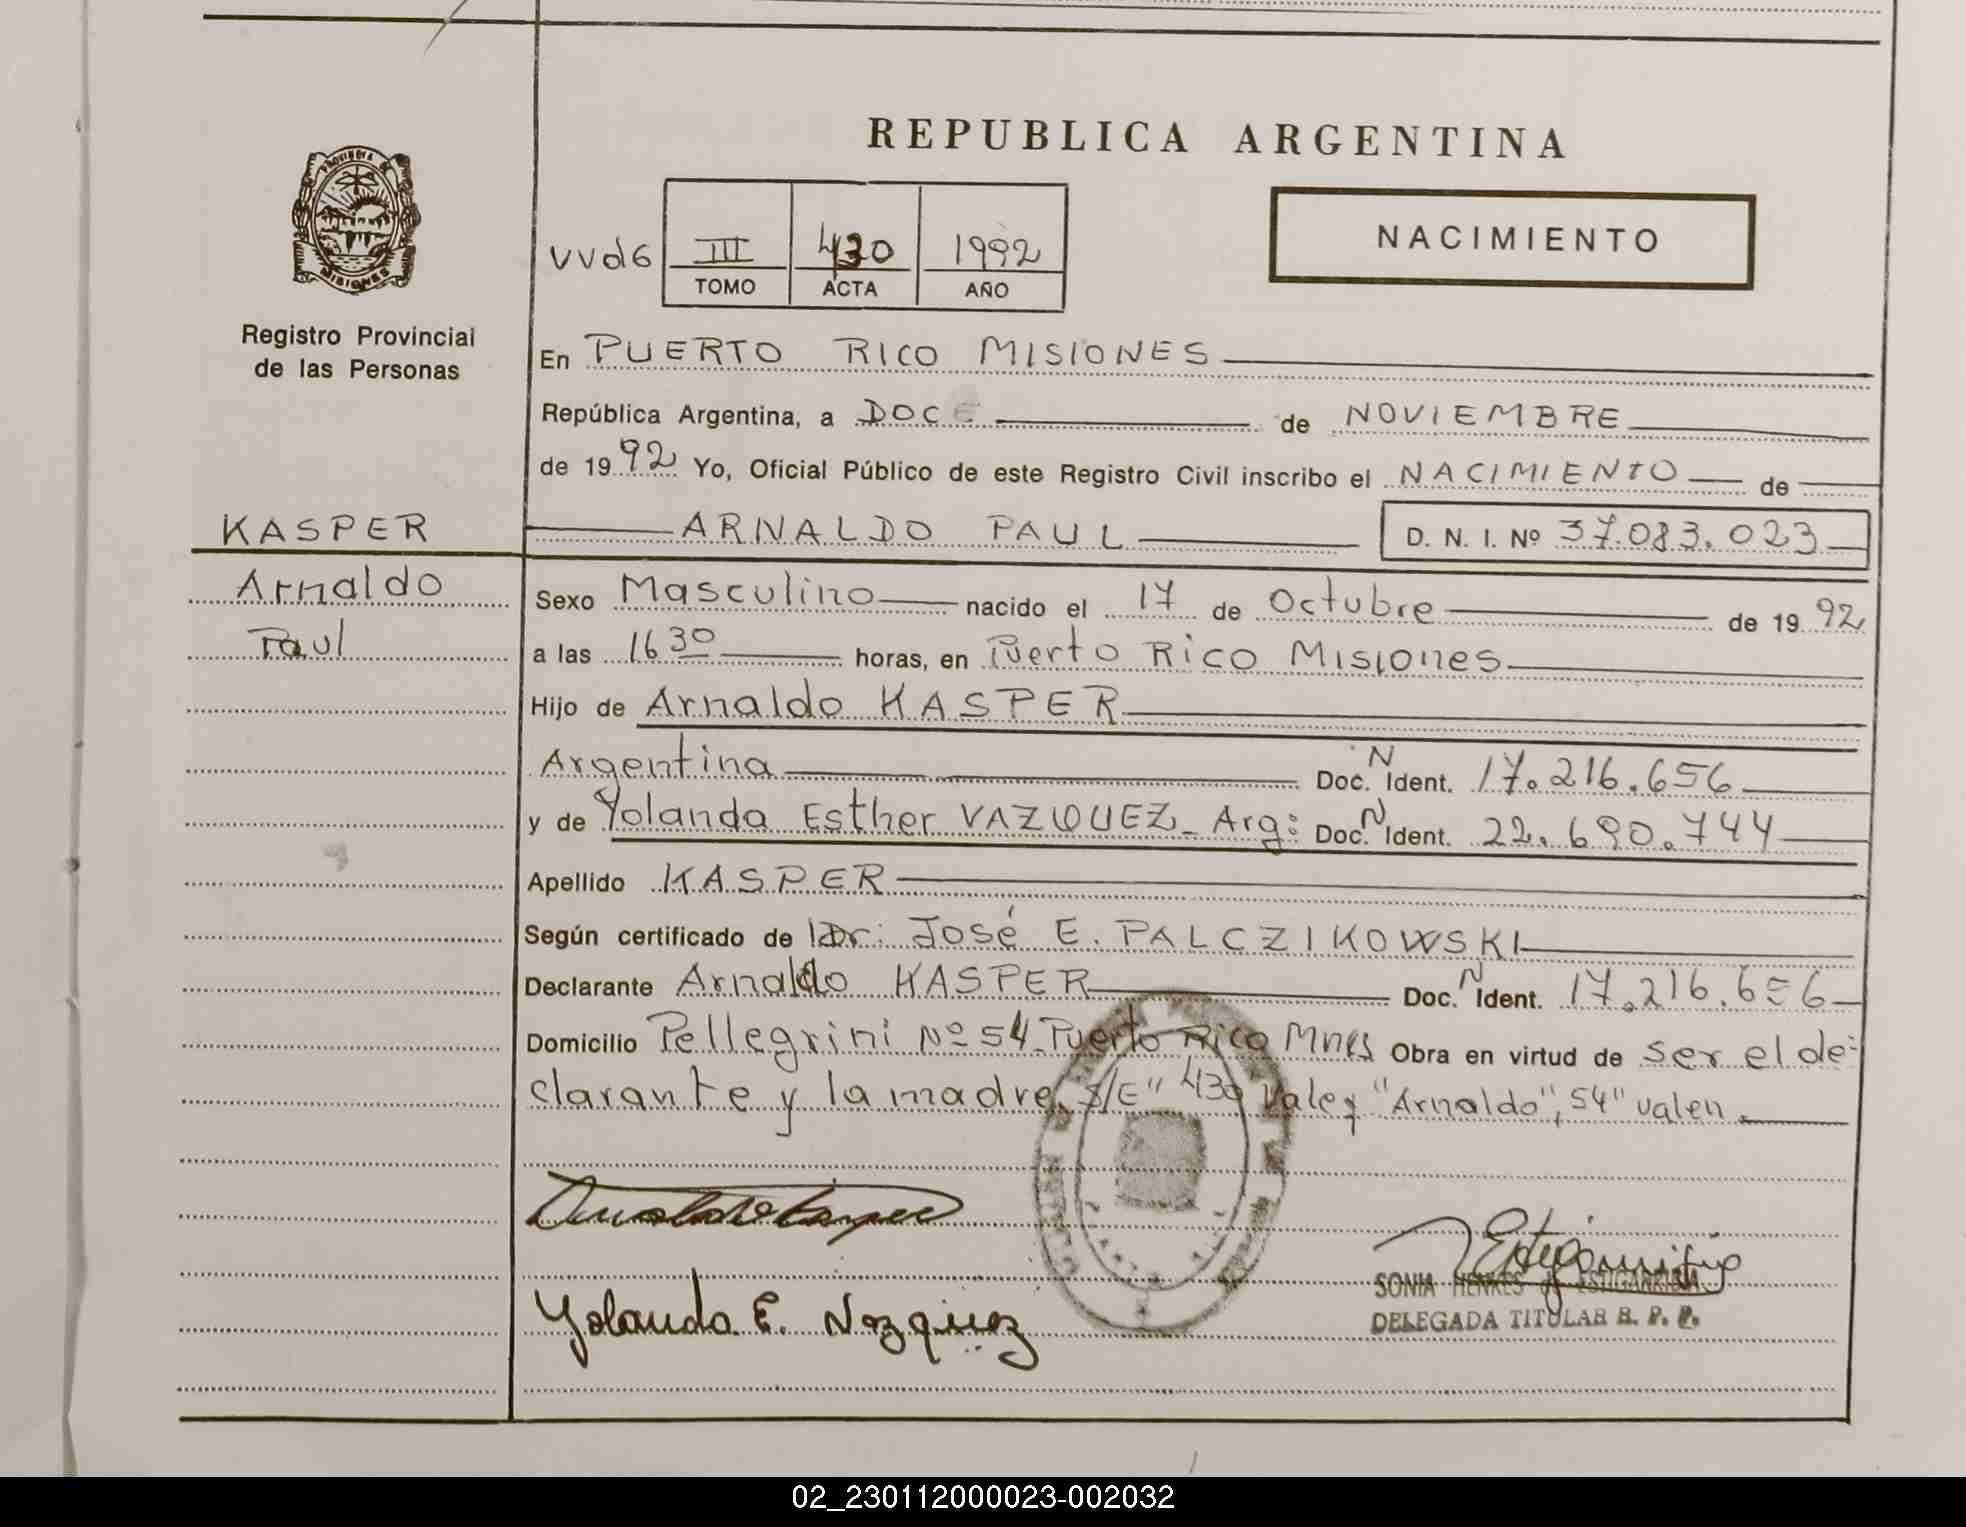 REPUBLICA ARGENTINA
PROVINCIA DE
MISIONES
Registro Provincial
de las Personas
NACIMIENTO
vvd6 III 430 1992
TOMO ACTA AÑO
En PUERTO RICO MISIONES
República Argentina, a DOCE de NOVIEMBRE
de 1992 Yo, Oficial Público de este Registro Civil inscribo el NACIMIENTO de
KASPER
ARNALDO PAUL D. N. I. Nº 37.083.023
Arnaldo
Paul
Sexo Masculino nacido el 17 de Octubre de 1992
a las 16 30 horas, en Puerto Rico Misiones
Hijo de Arnaldo KASPER
Argentina Doc. N Ident. 17.216.656
y de Yolanda Esther VAZQUEZ - Arg: Doc. N Ident. 22.690.744
Apellido KASPER
Según certificado de Dr: José E. PALCZIKOWSKI
Declarante Arnaldo KASPER Doc. N Ident. 17.216.656
Domicilio Pellegrini Nº 54 - Puerto Rico Mnes Obra en virtud de ser el de-
clarante y la madre, S/E" 430 Vale y "Arnaldo", 54" valen
Yolanda E. Vazquez
SONIA HENKES de ESTIGARRIBIA
DELEGADA TITULAR R. P. P.
02_230112000023-002032